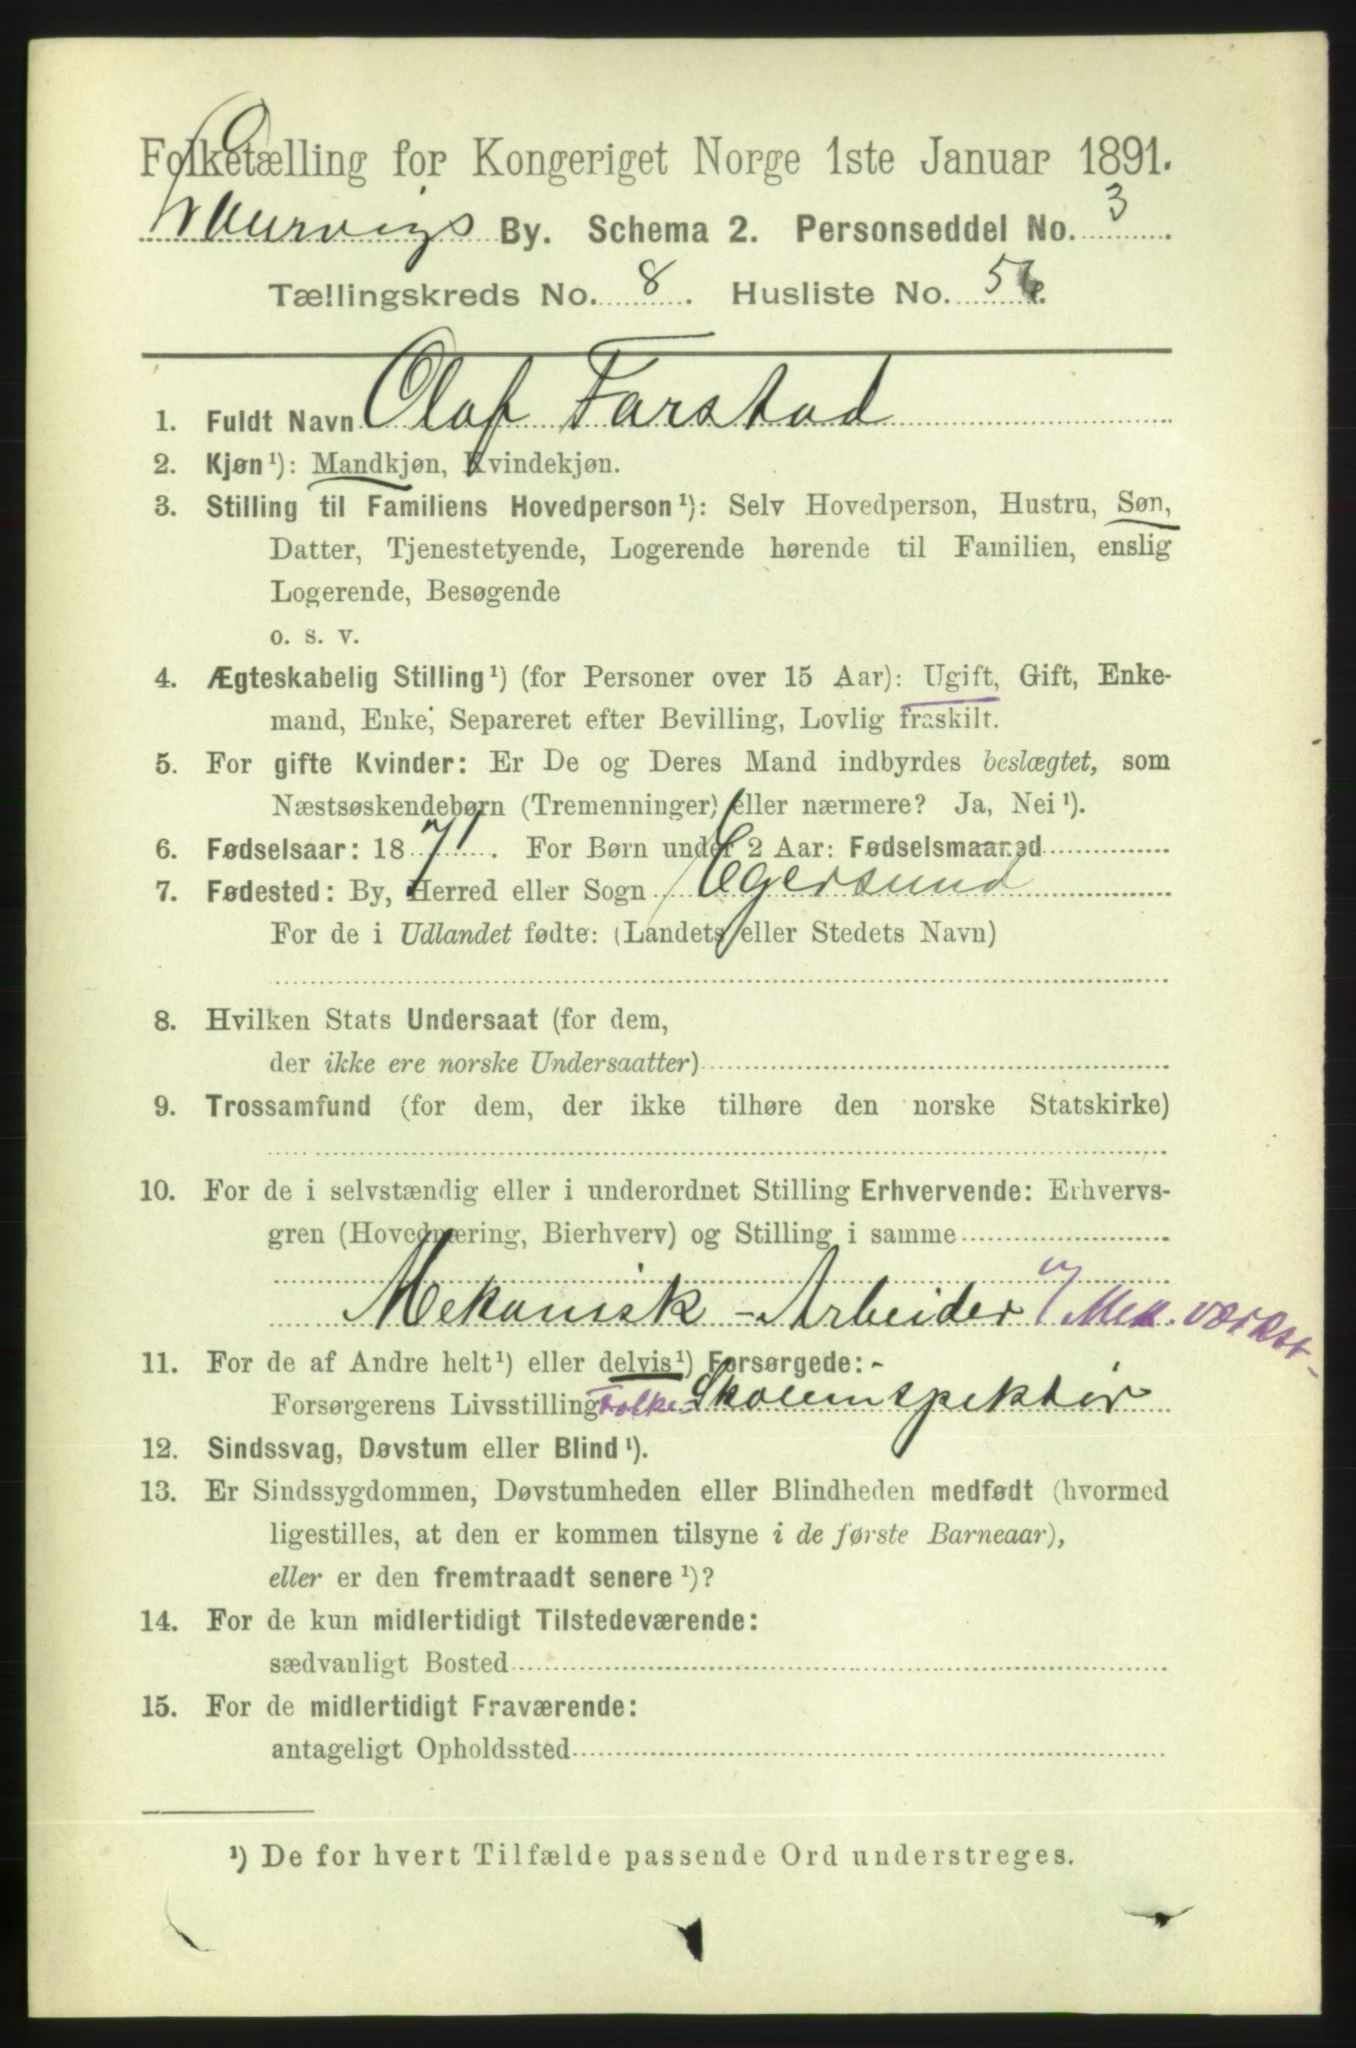 Folketælling for Kongeriget Norge 1ste Januar 1891.
Laurvigs By. Schema 2. Personseddel No. 3.
Tællingskreds No. 8. Husliste No. 56.
1. Fuldt Navn Olaf Farstad
2. Kjøn¹): Mandkjøn, Kvindekjøn.
3. Stilling til Familiens Hovedperson¹): Selv Hovedperson, Hustru, Søn,
Datter, Tjenestetyende, Logerende hørende til Familien, enslig
Logerende, Besøgende
o. s. v.
4. Ægteskabelig Stilling¹) (for Personer over 15 Aar): Ugift, Gift, Enke-
mand, Enke, Separeret efter Bevilling, Lovlig fraskilt.
5. For gifte Kvinder: Er De og Deres Mand indbyrdes beslægtet, som
Næstsøskendebørn (Tremenninger) eller nærmere? Ja, Nei¹).
6. Fødselsaar: 1871. For Børn under 2 Aar: Fødselsmaaned
7. Fødested: By, Herred eller Sogn Egersund
For de i Udlandet fødte: (Landets eller Stedets Navn)
8. Hvilken Stats Undersaat (for dem,
der ikke ere norske Undersaatter)
9. Trossamfund (for dem, der ikke tilhøre den norske Statskirke)
10. For de i selvstændig eller i underordnet Stilling Erhvervende: Erhvervs-
gren (Hovednæring, Bierhverv) og Stilling i samme
Mekanisk-Arbeider v/ Mek. værkst.
11. For de af Andre helt¹) eller delvis¹) Forsørgede:
Forsørgerens Livsstilling Folke-Skoleinspektør
12. Sindssvag, Døvstum eller Blind¹).
13. Er Sindssygdommen, Døvstumheden eller Blindheden medfødt (hvormed
ligestilles, at den er kommen tilsyne i de første Barneaar),
eller er den fremtraadt senere¹)?
14. For de kun midlertidigt Tilstedeværende:
sædvanligt Bosted
15. For de midlertidigt Fraværende:
antageligt Opholdssted
¹) De for hvert Tilfælde passende Ord understreges.